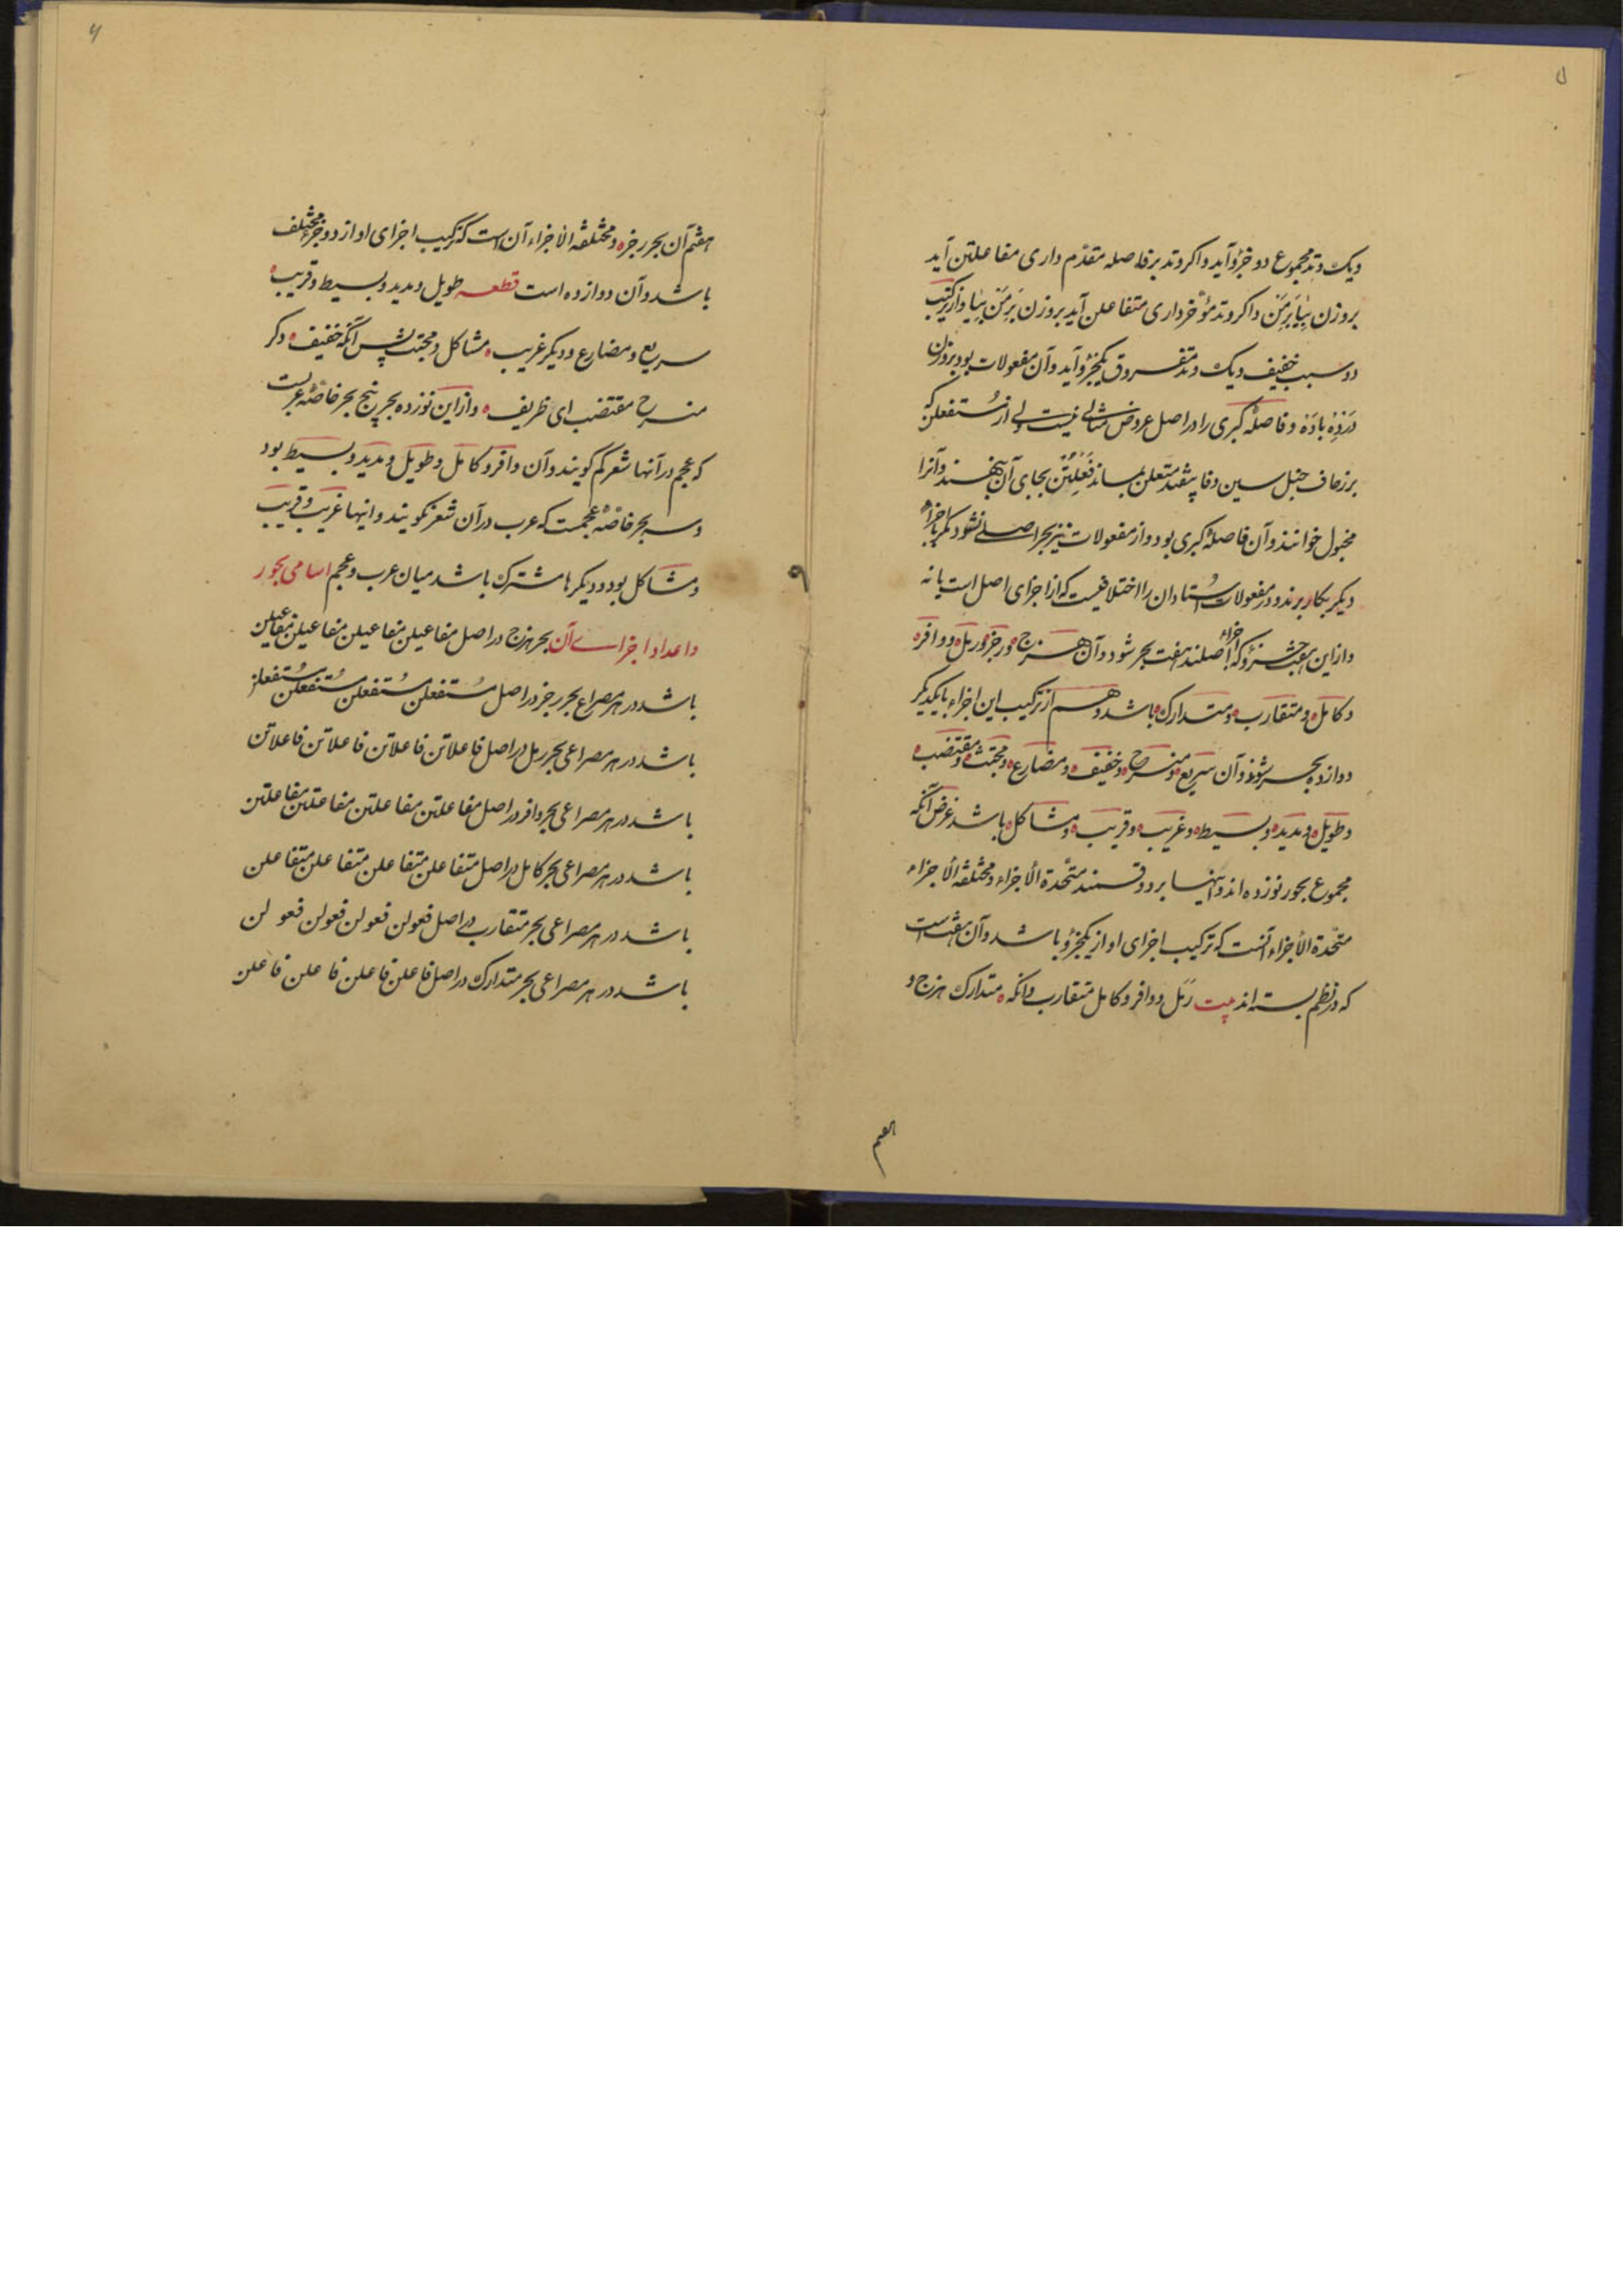 ۵
ویک وتد مجموع دو جزؤ آید واکر وتد بر فاصله مقدّم داری مفاعلتن آید
بروزن بِیٰا بَرِمَن واکر وتد مؤخّر داری متفاعلن آید بروزن بَرِمَن بِیٰا واز ترکیب
دو سبب خفیف ویک وتد مفروق یکجزؤ آید وآن مفعولات بود بروزن
و فاصلهٔ کبری را در اصل عروض مثالی نیست ولی از مُستفعلن که
بزحاف خبل سین وفا بیفتد متعلن بماند فَعَلَتُنْ بجای آن بنهند وآنرا
مخبول خوانند وآن فاصلهٔ کبری بود واز مفعولات نیز بحر اصلی نشود مکر با اجزاء
دیکر بکار برند ودر مفعولات اُستادان را اختلافیست که از اجزای اصل است یا نه
واز این هفت جزؤ که اجزاء اصلند هفت بحر شود وآن هزج ورجز ورمل ووافر
وکامل ومتقارب ومتدارک باشد وهم از ترکیب این اجزاء با یکدیکر
دوازده بحر شوند وآن سریع ومنسرح وخفیف ومضارع ومجتث ومقتضب
وطویل ومدید وبسیط وغریب وقریب ومشاکل باشد غرض آنکه
مجموع بحور نوزده اند واینها بر دو قسمند متّحدة الأجزاء ومختلفة الأجزاء
متّحدة الأجزاء آنست که ترکیب اجزای او از یکجزؤ باشد وآن هفت است
که در نظم بسته اند بیت رمَل ووافر وکامل متقارب وانکه متدارک هزج و
هفتم
۶
هفتم آن بحر رجز ومختلفة الأجزاء آن است که ترکیب اجزای او از دو جزؤ مختلف
باشد وآن دوازده است قطعه طویل ومدید وبسیط وقریب
سریع ومضارع ودیکر غریب مشاکل ومجتث پس آنکه خفیف دکر
منسرح مقتضب ای ظریف واز این نوزده بحر پنج بحر خاصّهٔ عربست
که عجم در آنها شعر کم کویند وآن وافر وکامل وطویل ومدید وبسیط بود
وسه بحر خاصّهٔ عجمست که عرب در آن شعر نکویند وانها غریب وقریب
ومشاکل بود ودیکرها مشترک باشد میان عرب وعجم اسامی بحور
واعداد اجزاے آن بحر هزج در اصل مفاعیلن مفاعیلن مفاعیلن مفاعیلن
باشد در هر مصراع بحر رجز در اصل مُستفعلن مُستفعلن مُستفعلن مُستفعلن
باشد در هر مصراعی بحر رمل در اصل فاعلاتن فاعلاتن فاعلاتن فاعلاتن
باشد در هر مصراعی بحر وافر در اصل مفاعلتن مفاعلتن مفاعلتن مفاعلتن
باشد در هر مصراعی بحر کامل در اصل متفاعلن متفاعلن متفاعلن متفاعلن
باشد در هر مصراعی بحر متقارب در اصل فعولن فعولن فعولن فعولن
باشد در هر مصراعی بحر متدارک در اصل فاعلن فاعلن فاعلن فاعلن